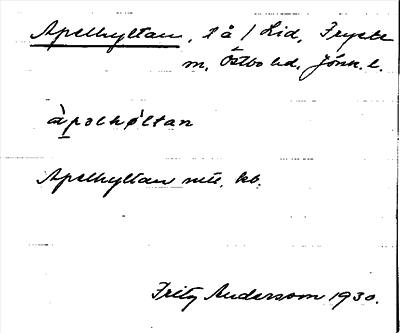 Apelhyltan, l å / Lid, Fryele
m, Östbo hd. Jönk. l.
àpəlhø̀ltan
Apelhyltan nute. kb.
Fritz Andersson 1930.